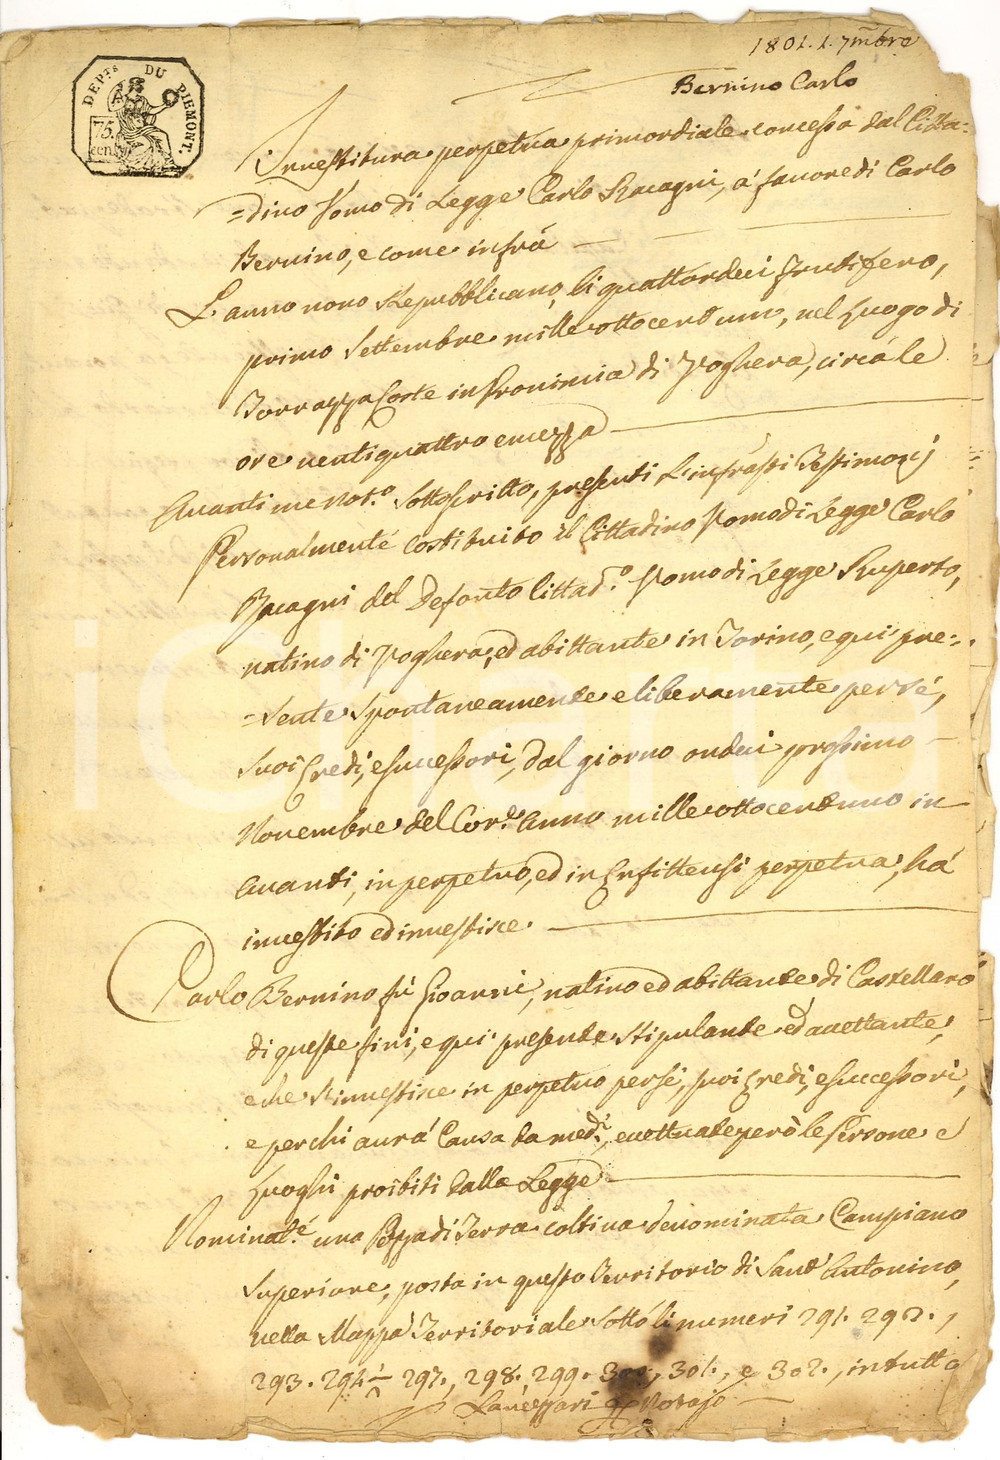 1801. 1. 7mbre
Bernino Carlo
DEPts DU PIEMONT.
75 cent
Inuestitura perpetua primordiale concessa dal Citta=
=dino Uomo di Legge Carlo Racagni, a fauore di Carlo
Bernino, e come infrà
L'anno nono Repubblicano, li quattordeci Frutifero,
primo Settembre mille ottocent'uno, nel Luogo di
Torrazza Coste in Prouincia di Voghera, circa le
ore uentiquattro e mezza
Auanti me Not.o Sottoscritto, presenti L'infras.ti Testimonj
Personalmente Costituito il Cittadino Uomo di Legge Carlo
Racagni del Defonto Cittad.o Uomo di Legge Ruperto,
natiuo di Voghera, ed abittante in Torino, e qui pre=
=sente Spontaneamente e liberamente per sé,
suoi Eredi, e successori, dal giorno ondeci prossimo
Nouembre del Cor.te Anno mille ottocent'uno in
Auanti, in perpetuo, ed in Enfittensi perpetua, há
inuestito ed inuestisce.
Carlo Bernino fù Gioanni, natiuo ed abittante di Castellaro
di queste fini, e qui presente stipulante ed accettante,
e che s'inuestisce in perpetuo per sé, suoi Eredi, e successori,
e per chi aurá Causa da med.i, eccettuate però le Persone e
Luoghi proibiti dalla Legge
Nominat.e una Pezza di Terra coltiua denominata Campiano
Superiore, posta in questo Territorio di Sant'Antonino,
nella Mappa Territoriale Sotto li numeri 291. 292.,
293. 294. 297., 298., 299. 300., 301., e 302., in tutto
Notajo